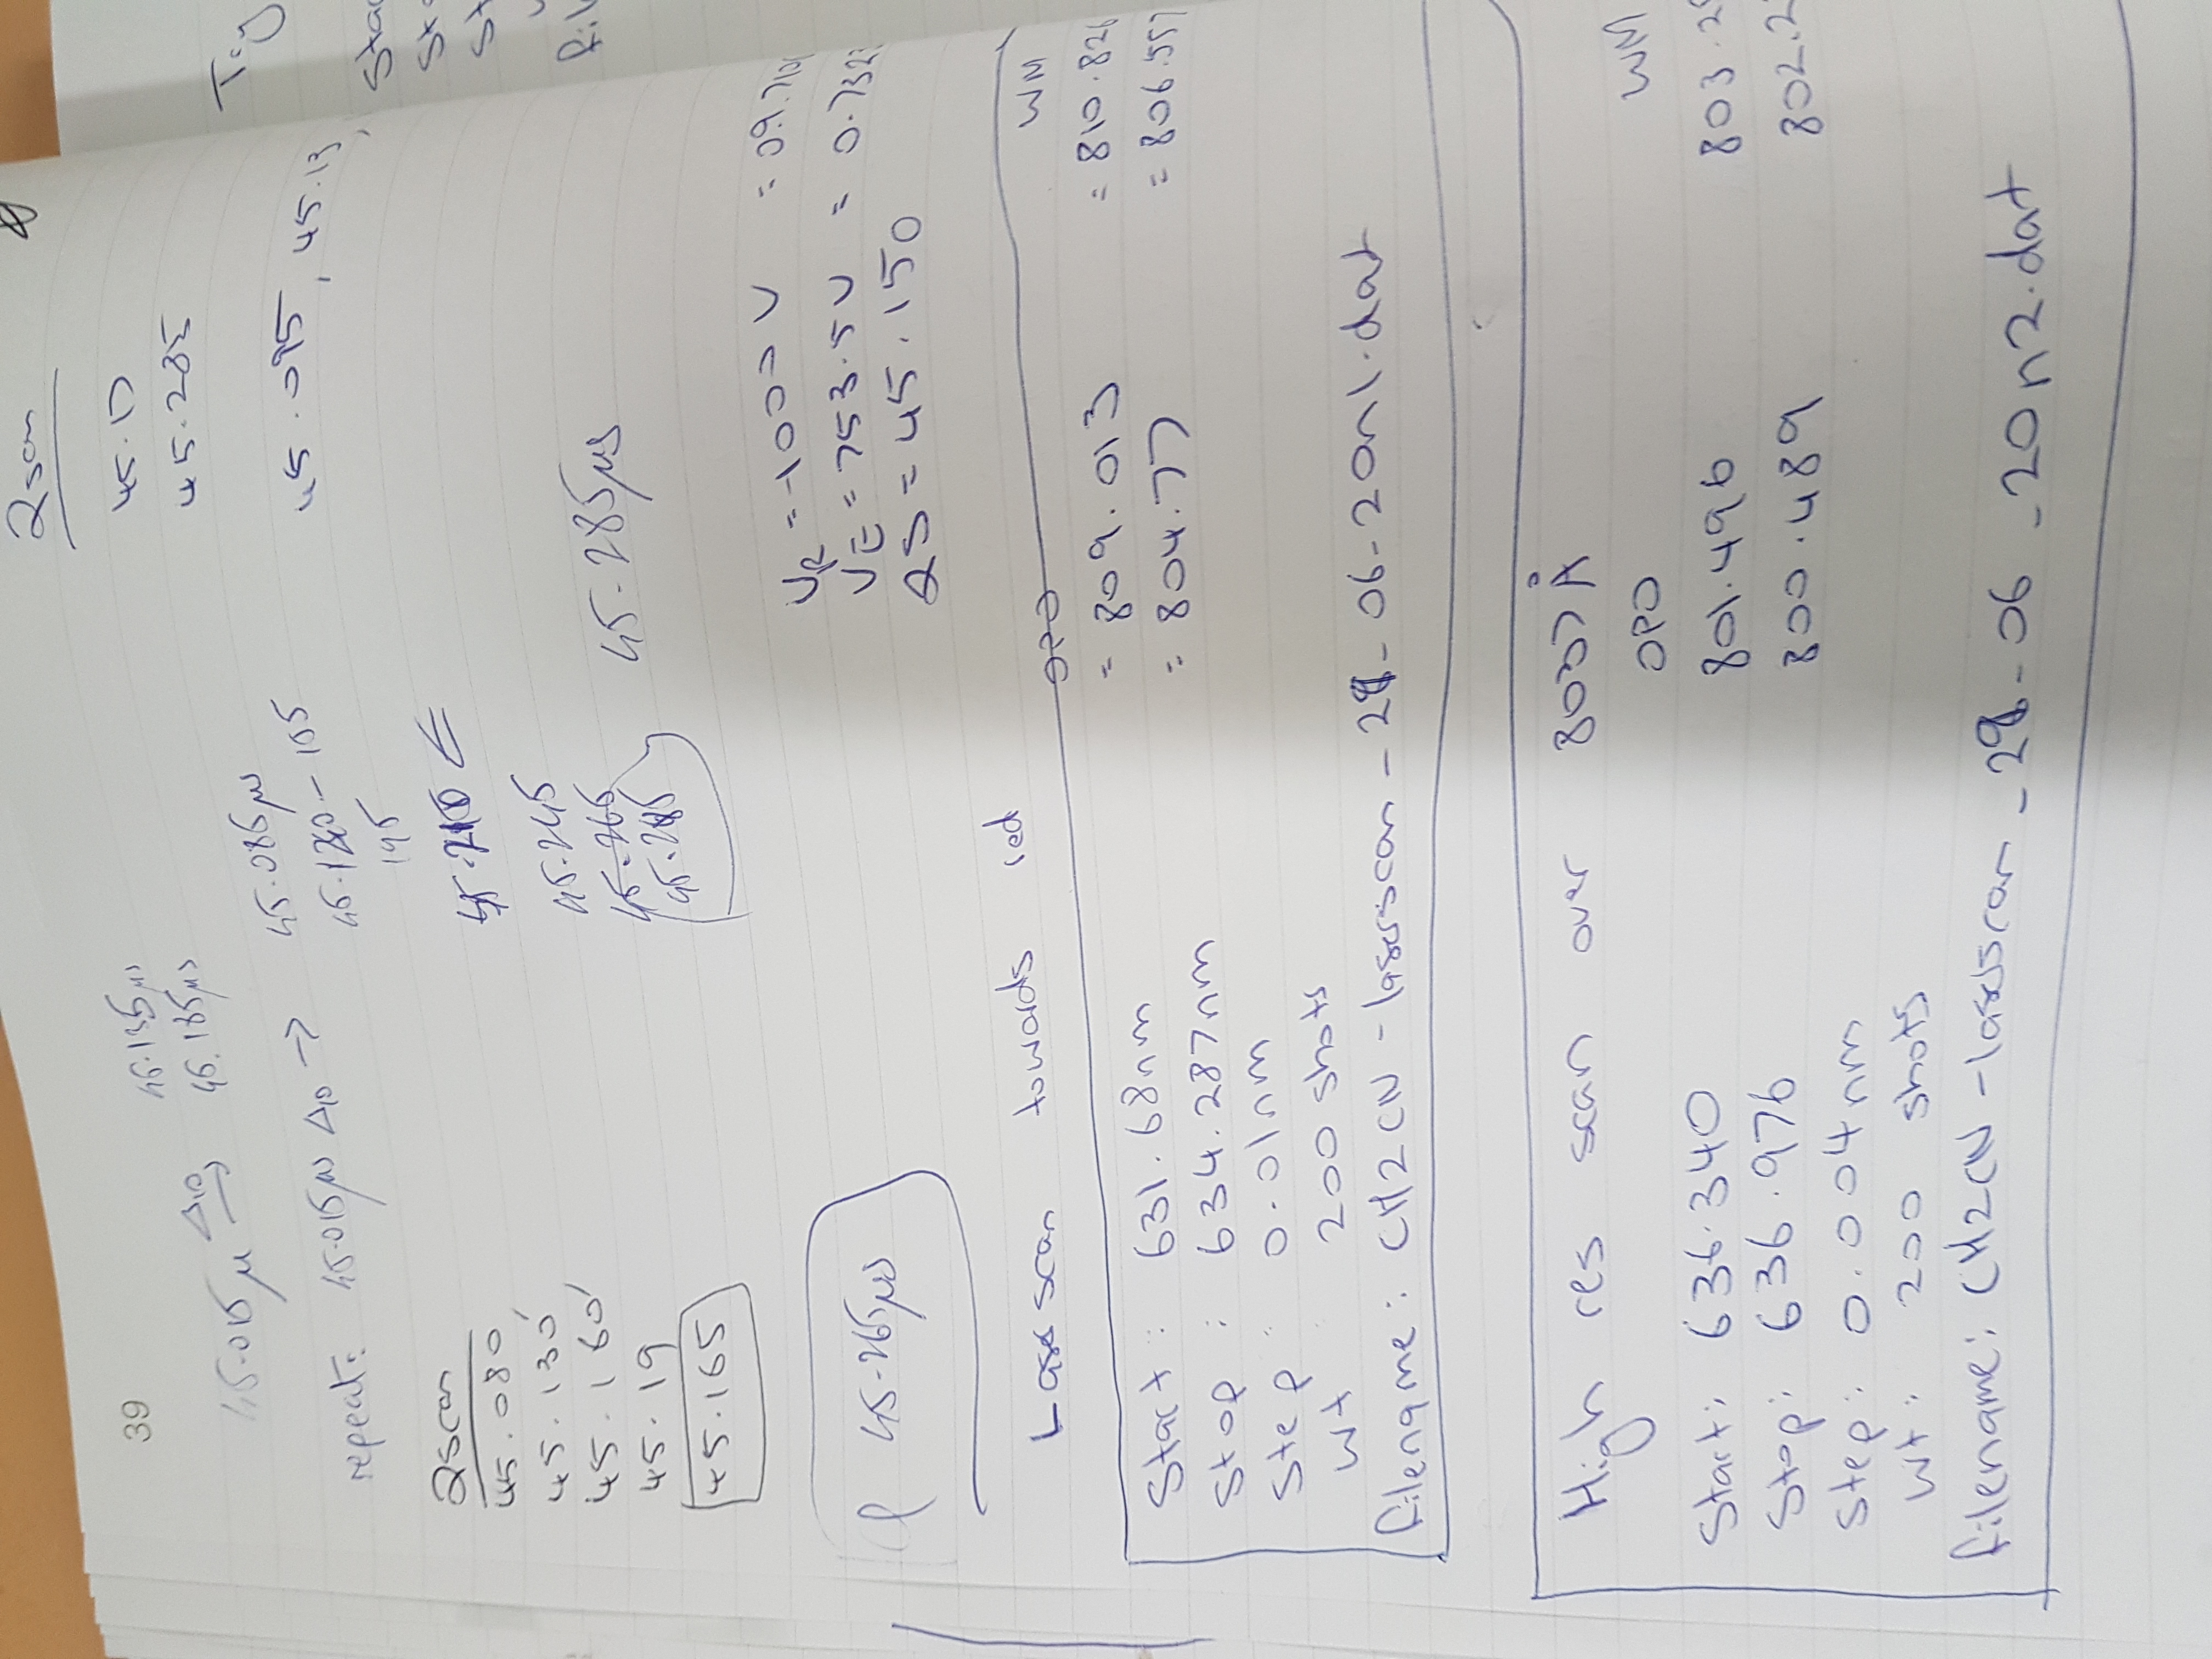 39
Qscan
45.17
45.285
45.015μ Δ10 → 45.135μs
45.185μs
repeat: 45.015μs Δ10 → 45.085μs
45.095, 45.13,
195
Qscan
45.080,
45.130
45.160
45.19
45.165
45.210
45.245
45.265
45.285
45.285μs
45.265μs
VR = -1000V
VE = 753.5V = 0.732
QS = 45.150
Laserscan towards red
OPO WM
Start: 631.68nm = 809.013 = 810.826
Stop: 634.287nm = 804.77 = 806.557
Step: 0.01nm
Wt 200 shots
filename: CH2CN-laserscan_28_06-20n1.dat
High res scan over 8037Å
OPO WM
Start: 636.340 801.496 803.2
Stop: 636.976 800.489 802.2
Step: 0.004nm
Wt: 200 shots
filename: CH2CN-laserscan_28_06_20n2.dat